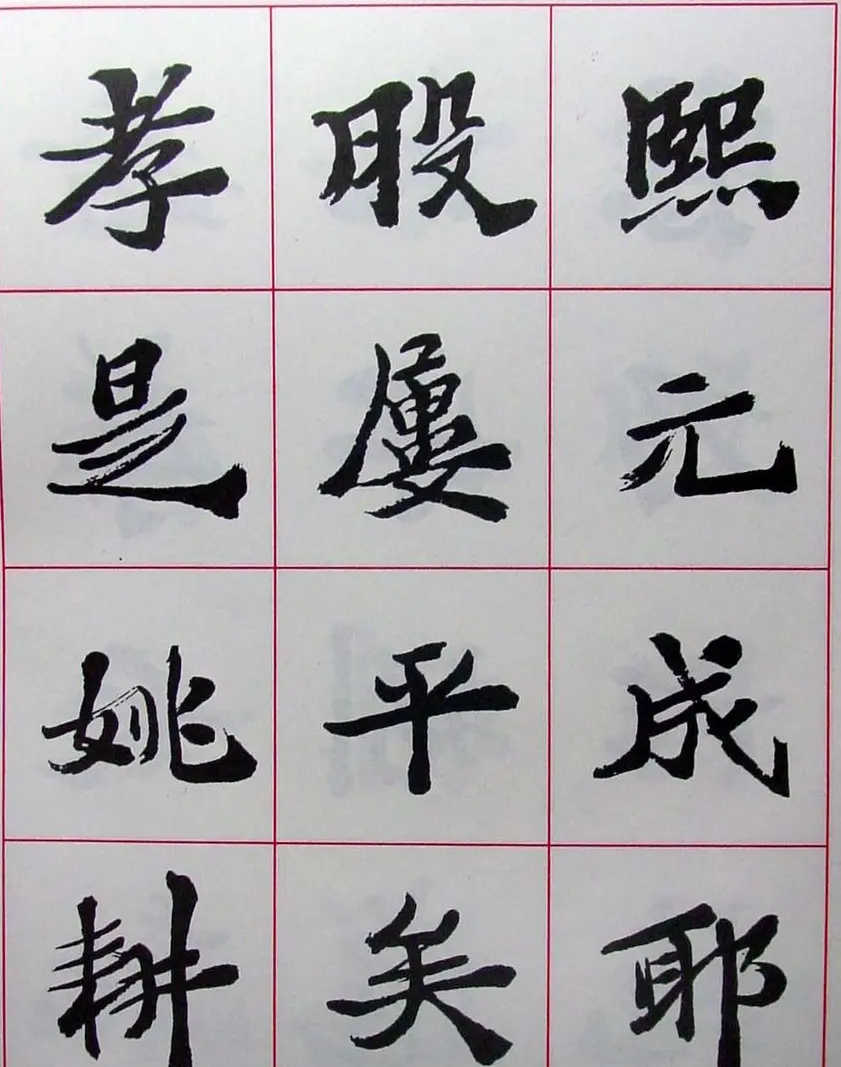 熙元成耶
股屢平矣
孝是姚耕